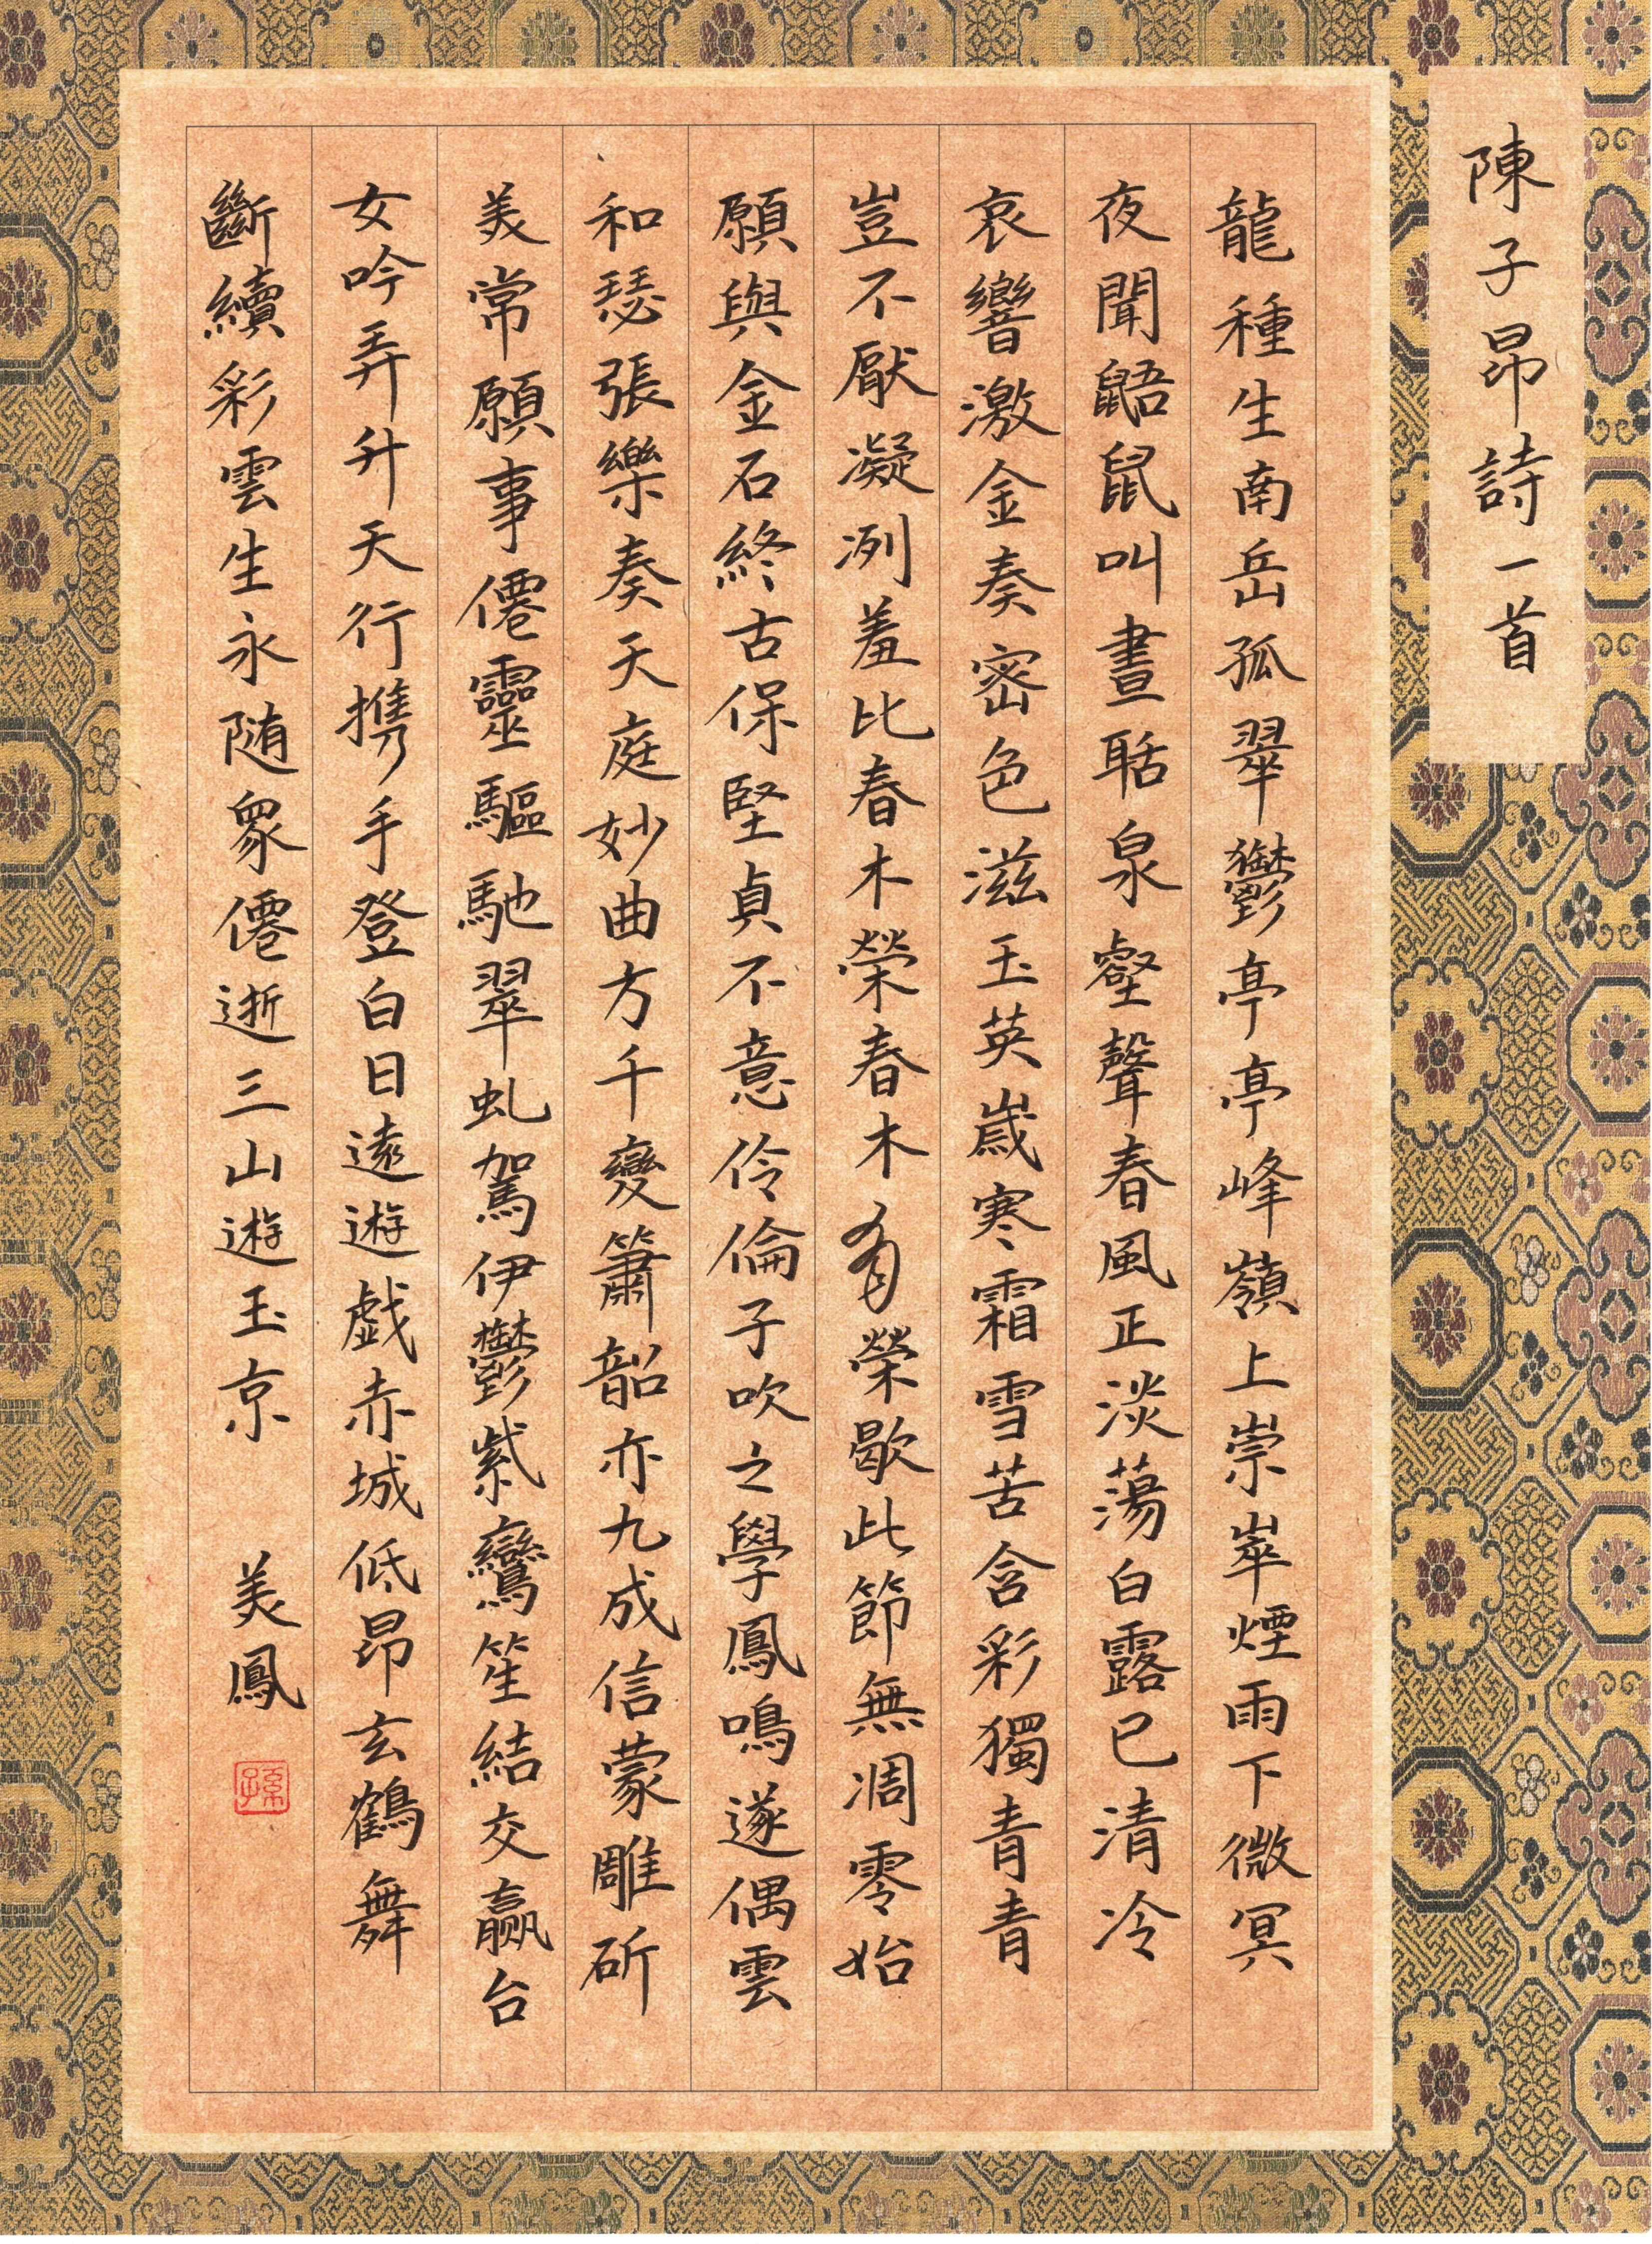 陳子昂詩一首
龍種生南岳孤翠鬱亭亭峰嶺上崇崒煙雨下微冥
夜聞鼯鼠叫晝聒泉壑聲春風正淡蕩白露已清泠
哀響激金奏密色滋玉英歲寒霜雪苦含彩獨青青
豈不厭凝冽羞比春木榮春木有榮歇此節無凋零始
願與金石終古保堅貞不意伶倫子吹之學鳳鳴遂偶雲
和瑟張樂奏天庭妙曲方千變簫韶亦九成信蒙雕斫
美常願事僊靈驅馳翠虬駕伊鬱紫鸞笙結交嬴台
女吟弄升天行携手登白日遠遊戲赤城低昂玄鶴舞
斷續彩雲生永随衆僊逝三山遊玉京
美鳳
孫